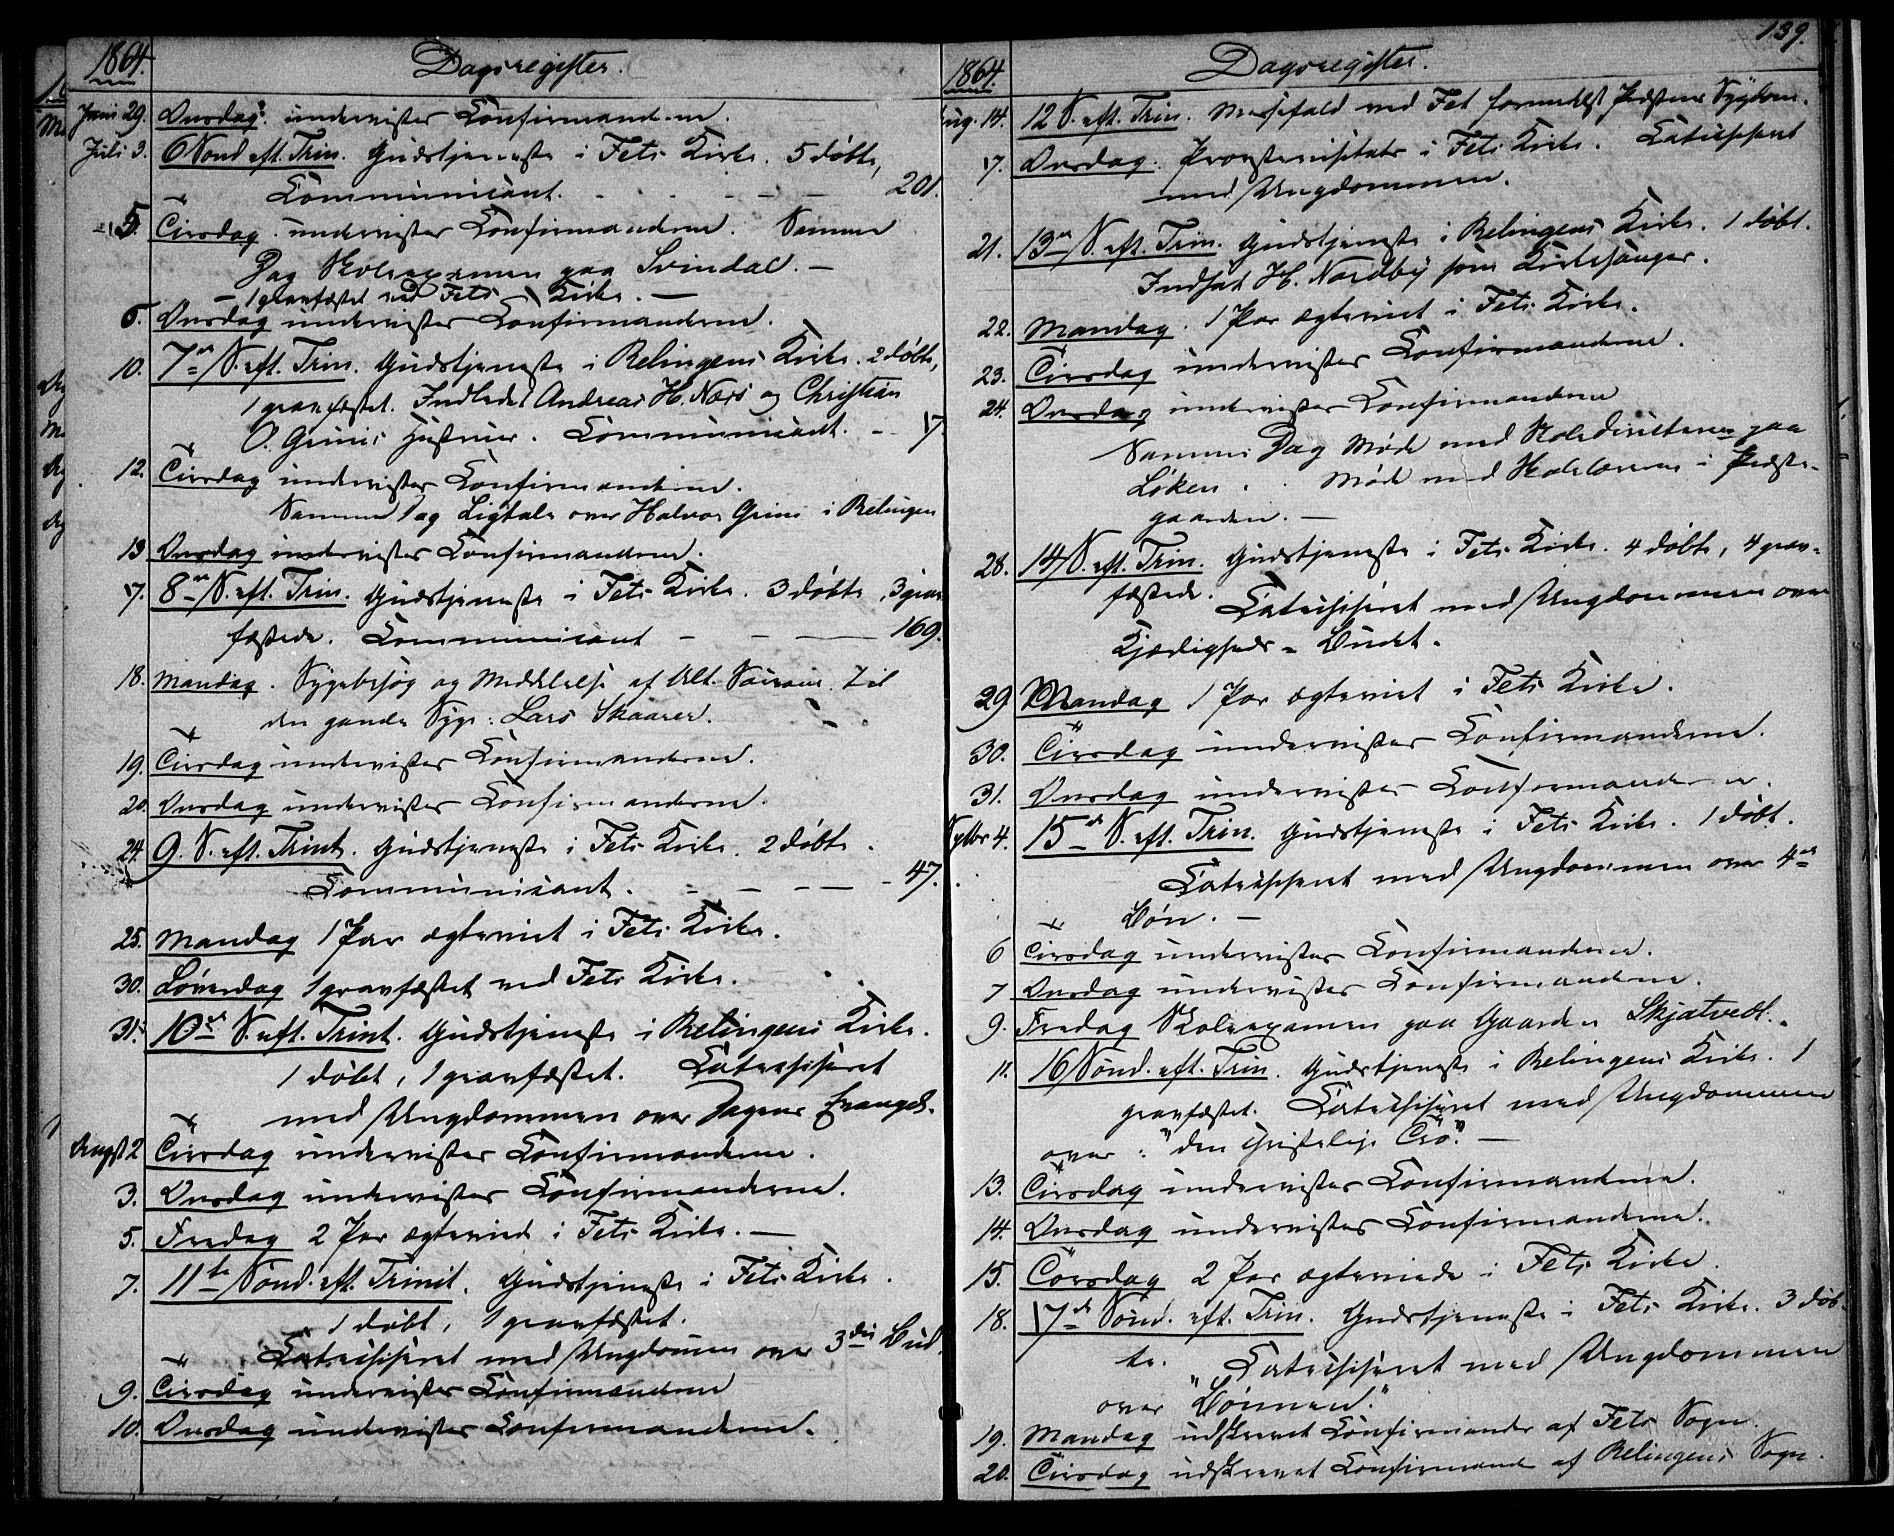 1864.
Dagsregister.
Juni 29. Onsdag: underviste Confirmanderne.
Juli 3. 6 Sønd. eft. Trin. Gudstjeneste i Fets Kirke. 5 døbte,
Communicant. - - - - - 201.
5. Tirsdag. underviste Confirmanderne. Samme
Dag Skoleexamen paa Svindal. -
- 1 gravfæstet ved Fets Kirke. -
6. Onsdag underviste Confirmanderne.
10. 7de S. eft. Trin. Gudstjeneste i Relingens Kirke. 2 døbte,
1 gravfæstet. Indledet Andreas H. Næs og Christian
O. Grinis Hustruer. Communicant. - 17.
12. Tirsdag underviste Confirmanderne.
Samme Dag Ligtale over Halvor Grini i Relingen
13 Onsdag underviste Confirmanderne.
17. 8de S. eft. Trin. Gudstjeneste i Fets Kirke. 3 døbte, 3 grav-
fæstede. Communicant - - - 169.
18. Mandag. Sygebesøg og Meddelelse af Alt. Sacram. til
Syge: Lars Skaarer.
19. Tirsdag underviste Confirmanderne.
20. Onsdag underviste Confirmanderne.
24. 9. S. eft. Trinit. Gudstjeneste i Fets Kirke. 2 døbte.
Communicant. - - - - - 47.
25. Mandag 1 Par ægteviet i Fets Kirke.
30. Løverdag 1 gravfæstet ved Fets Kirke.
31. 10de S. eft. Trinit. Gudstjeneste i Relingens Kirke.
1 døbt, 1 gravfæstet. Catechiseret
med Ungdommen over Dagens Evangel.
Augst 2 Tirsdag underviste Confirmanderne.
3. Onsdag underviste Confirmanderne.
5. Fredag 2 Par ægteviet i Fets Kirke. -
7. 11te Sønd. eft. Trinit. Gudstjeneste i Fets Kirke.
1 døbt, 1 gravfæstet.
Catechiseret med Ungdommen over 3die Bud.
9. Tirsdag underviste Confirmanderne
10. Onsdag underviste Confirmanderne.
139.
1864.
Dagsregister.
Aug. 14. 12 S. eft. Trin. Messefald ved Fet formedelst Præstens Sygdom.
17. Onsdag. Provstevisitats i Fets Kirke. Catechiseret
med Ungdommen.
21. 13de S. eft. Trin. Gudstjeneste i Relingens Kirke. 1 døbt.
Indsat H. Nordby som Kirkesanger.
22. Mandag. 1 Par ægteviet i Fets Kirke.
23. Tirsdag underviste Confirmanderne.
24. Onsdag underviste Confirmanderne
Samme Dag Møde med Skoledirecteuren paa
Løken. Møde med Skolelærerne i Præste-
gaarden. -
28. 14 S. eft. Trin. Gudstjeneste i Fets Kirke. 4 døbte, 4 grav-
fæstede. Catechiseret med Ungdommen over
Kjærligheds-Budet.
29 Mandag 1 Par ægteviet i Fets Kirke.
30. Tirsdag underviste Confirmanderne.
31. Onsdag underviste Confirmanderne.
Septbr 4. 15de S. eft. Trin. Gudstjeneste i Fets Kirke. 1 døbt.
Catechiseret med Ungdommen over 4de
Bøn. -
6 Tirsdag underviste Confirmanderne.
7 Onsdag underviste Confirmanderne.
9. Fredag Skoleexamen paa Gaarden Skjatvedt.
11. 16 Sønd. eft. Trin. Gudstjeneste i Relingens Kirke. 1
gravfæstet. Catechiseret med Ungdommen
over: "den christelige Tro". -
13. Tirsdag underviste Confirmanderne.
14. Onsdag underviste Confirmanderne.
15. Torsdag 2 Par ægteviede i Fets Kirke.
18. 17de Sønd. eft. Trin. Gudstjeneste i Fets Kirke. 3 døb-
te. Catechiseret med Ungdommen
over "Bønnen."
19. Mandag udskrevet Confirmander af Fets Sogn.
20. Tirsdag udskrevet Confirmand. af Relingens Sogn.